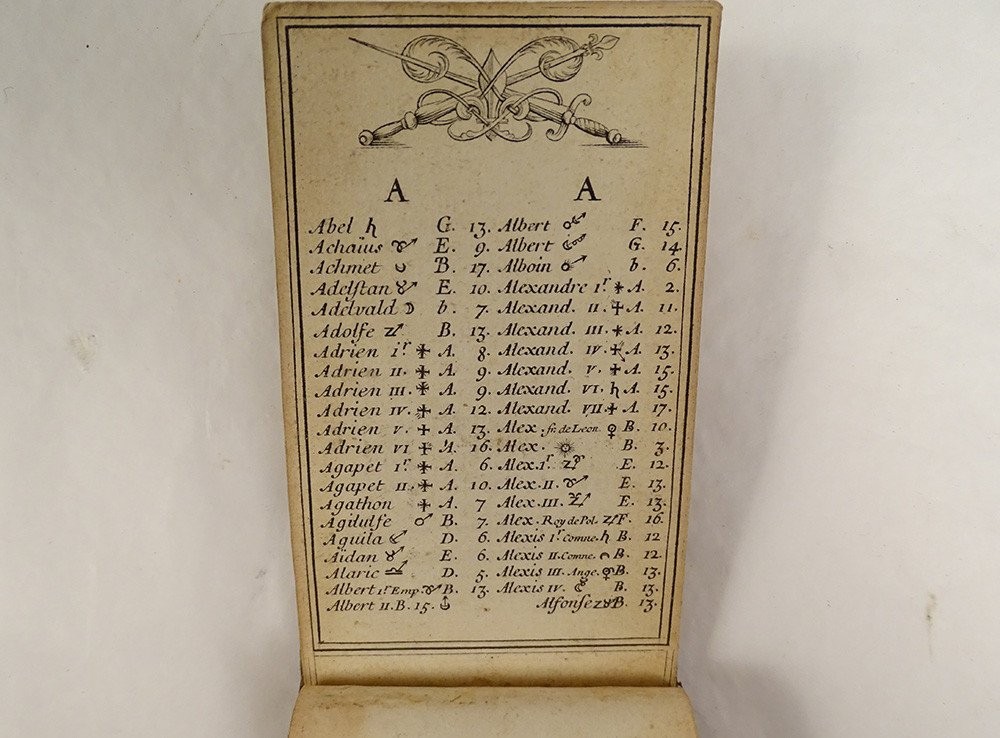 A
Abel ♄ G. 13.
Achaïus E. 9.
Achmet B. 17.
Adelstan E. 10.
Adelvald ☽ b. 7.
Adolfe B. 13.
Adrien I.r ✠ A. 8.
Adrien II. ✠ A. 9.
Adrien III. ✠ A. 9.
Adrien IV. ✠ A. 12.
Adrien V. ✠ A. 13.
Adrien VI ✠ A. 16.
Agapet I.r ✠ A. 6.
Agapet II. ✠ A. 10.
Agathon ✠ A. 7
Agilulfe ♂ B. 7.
Aguila D. 6.
Aïdan E. 6.
Alaric D. 5.
Albert I.r Emp. B. 13.
Albert II. B. 15.
A
Albert F. 15.
Albert G. 14.
Alboin b. 6.
Alexandre I.r A. 2.
Alexand. II. ✠ A. 11.
Alexand. III. A. 12.
Alexand. IV. ✠ A. 13.
Alexand. V. ✠ A. 15.
Alexand. VI. ♄ A. 15.
Alexand. VII ✠ A. 17.
Alex. fr. de Leon ♀ B. 10.
Alex. ☼ B. 3.
Alex. I.r E. 12.
Alex. II. E. 13.
Alex. III. E. 13.
Alex. Roy de Pol. F. 16.
Alexis I.r Comne. ♄ B. 12
Alexis II. Comne. B. 12.
Alexis III. Ange. B. 13.
Alexis IV. B. 13.
Alfonse B. 13.